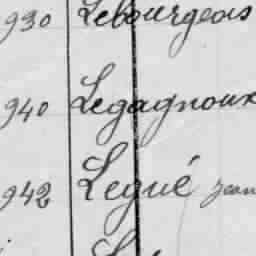 930 Lebourgeois
940 Legagnoux
942 Legué Jean